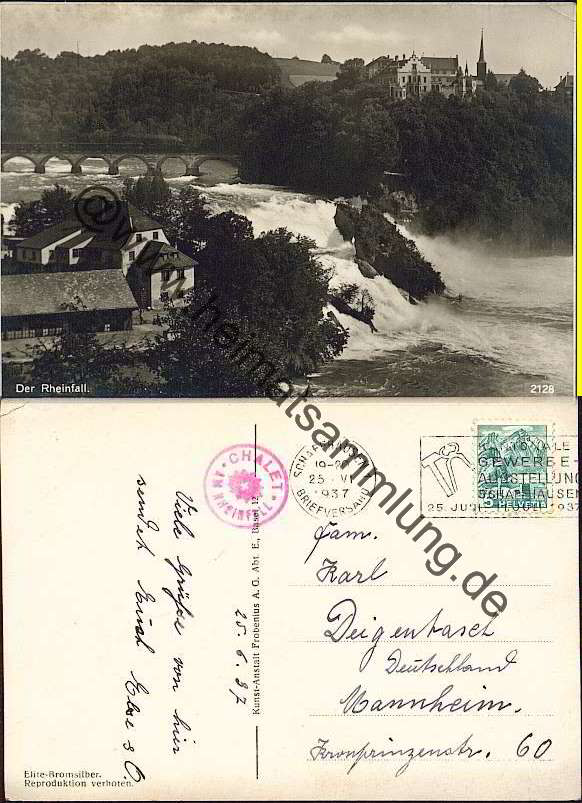 Der Rheinfall.
2128
@www.heimatsammlung.de
CHALET
IM RHEINFALL
SCHAFFHAUSEN
19-20
25. VI.
1937
BRIEFVERSAND
KANTONALE
GEWERBE-
AUSSTELLUNG
SCHAFFHAUSEN
Viele Grüße von hier
sendet Euch Else
25. 6. 37
Kunst-Anstalt Frobenius A. G. Abt. E., Basel 12
Fam.
Karl
Deigentasch
Deutschland
Mannheim.
Kronprinzenstr. 60
Elite-Bromsilber.
Reproduktion verboten.